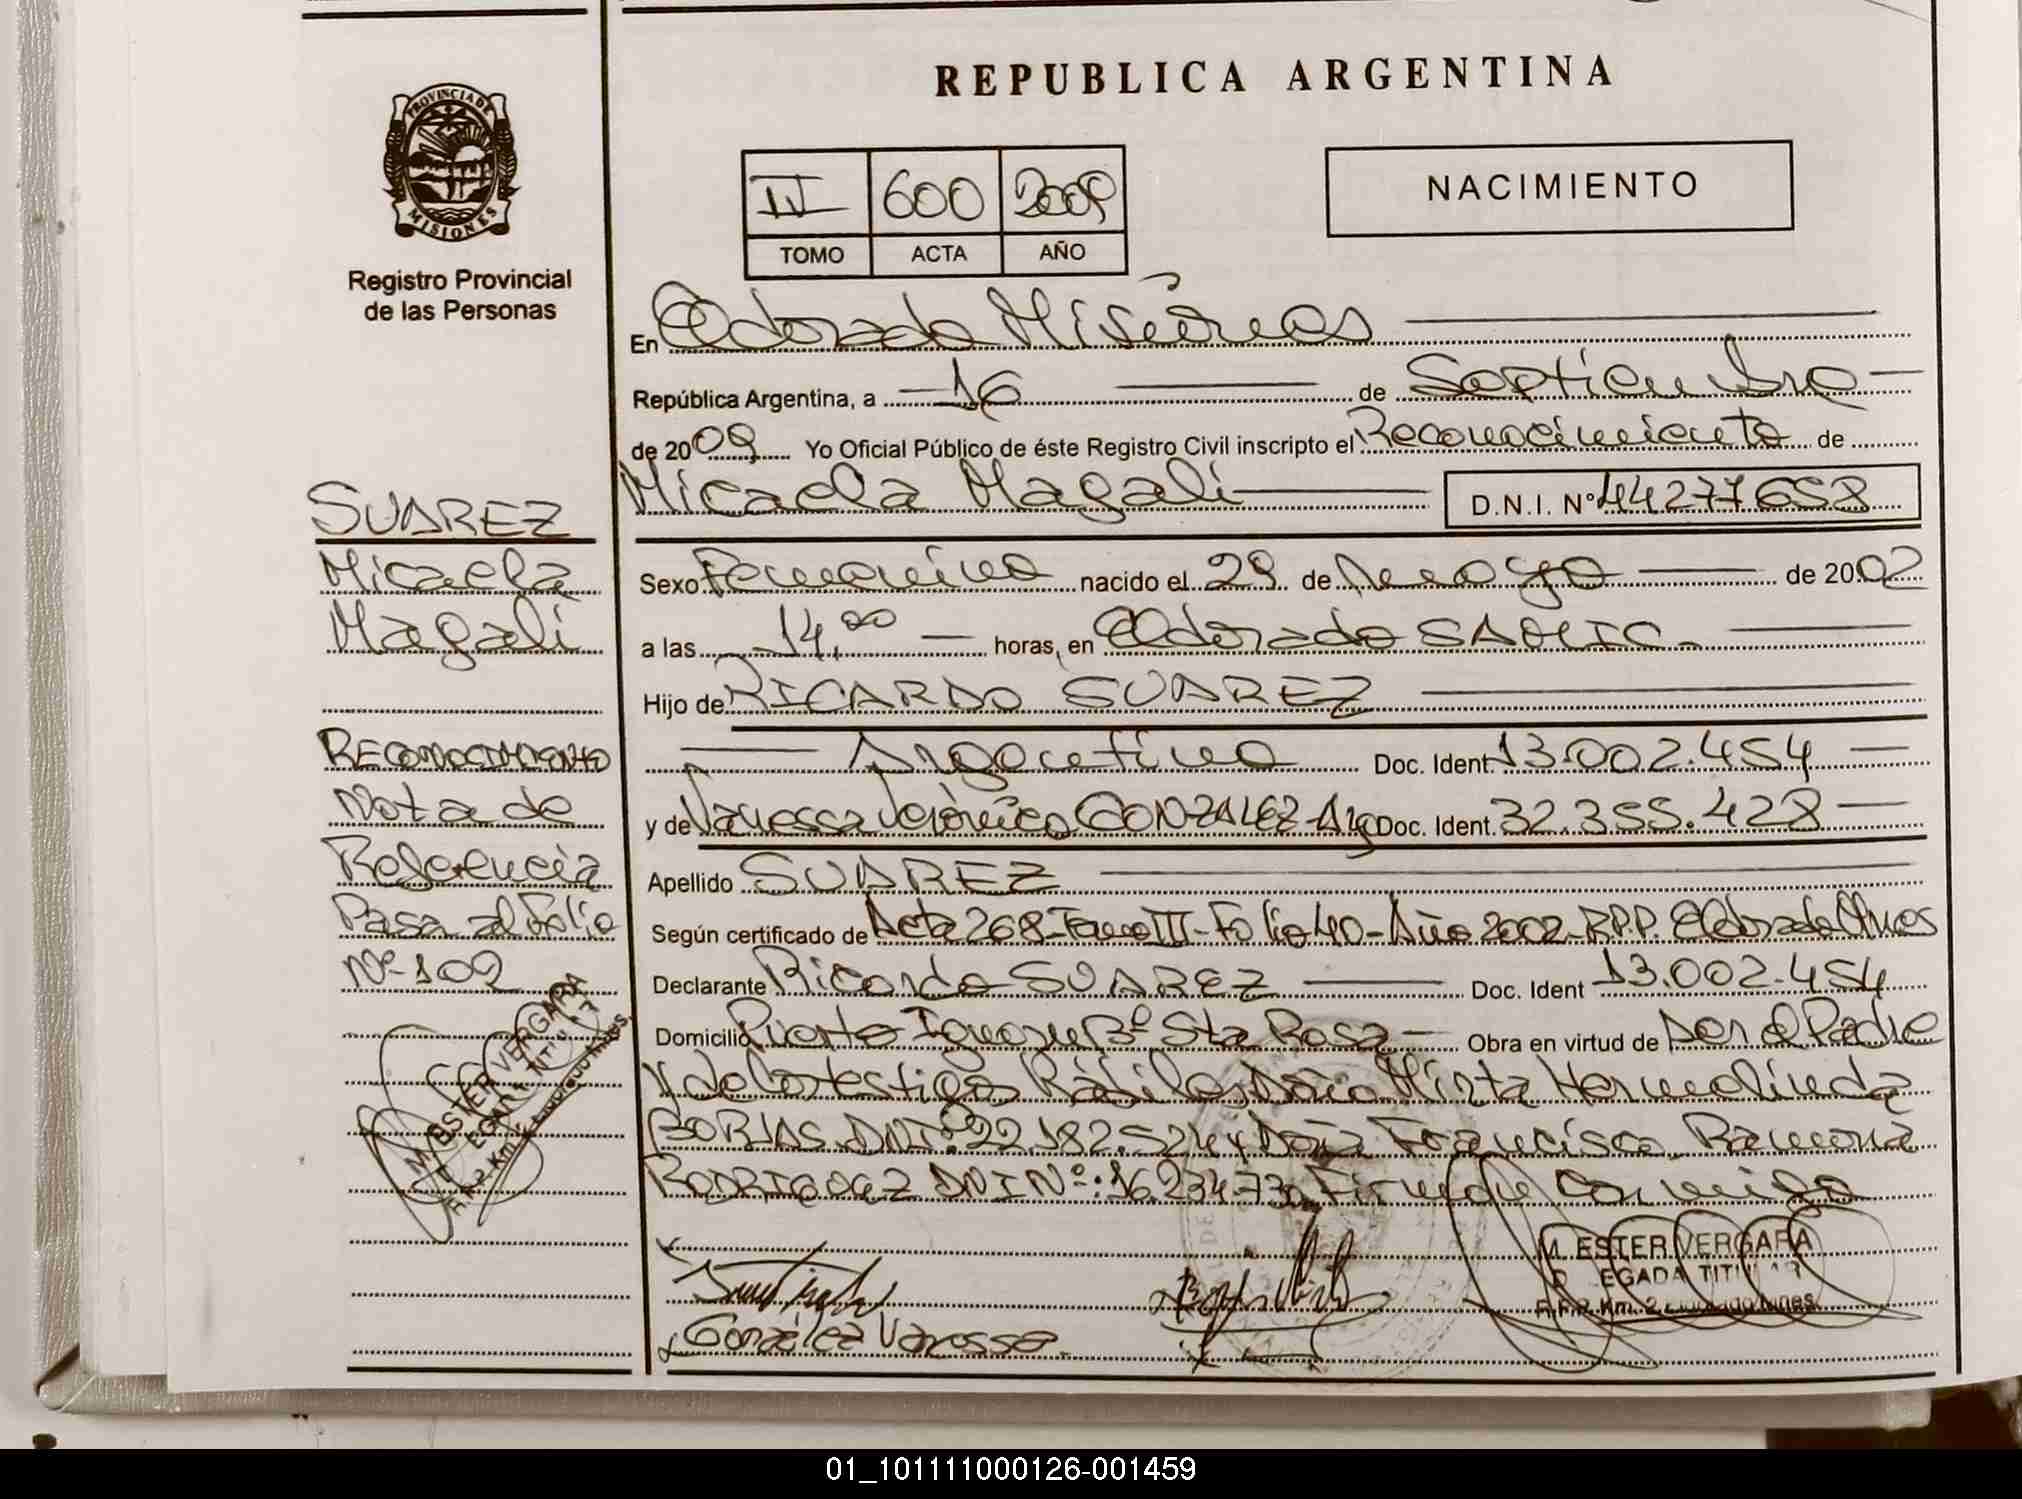 REPUBLICA ARGENTINA
PROVINCIA DE
MISIONES
Registro Provincial
de las Personas
IV 600 2009
TOMO ACTA AÑO
NACIMIENTO
En Eldorado Misiones
República Argentina, a 16 de Septiembre
de 2009 Yo Oficial Público de éste Registro Civil inscripto el Reconocimiento de
Micaela Magali D.N.I. Nº 44277658
Sexo Femenino nacido el 29 de Mayo de 2002
a las 14,00 horas, en Eldorado SAMIC.
Hijo de RICARDO SUAREZ
Argentino Doc. Ident. 13.002.454
y de Vanessa Verónica GONZALEZ - Arg Doc. Ident. 32.355.428
Apellido SUAREZ
Según certificado de Acta 268 - Tomo III - Folio 40 - Año 2002 - R.P.P. Eldorado Mnes
Declarante Ricardo SUAREZ Doc. Ident 13.002.454
Domicilio Puerto Iguazu Bº Sta Rosa Obra en virtud de Ser el Padre
y de los testigos Hábiles Doña Mirta Hermelinda
BORJAS DNI Nº 22.182.524 y Doña Francisca Ramona
RODRIGUEZ DNI Nº: 16.234.730 Firmando Conmigo
González Vanessa
M. ESTER VERGARA
DELEGADA TITULAR
R.P.P. Km. 2 Eldorado Mnes.
SUAREZ
Micaela
Magali
RECONOCIMIENTO
Nota de
Referencia
Pasa al Folio
Nº 109
M. ESTER VERGARA
DELEGADA TITULAR
R.P.P. Km. 2 Eldorado Mnes.
01_101111000126-001459